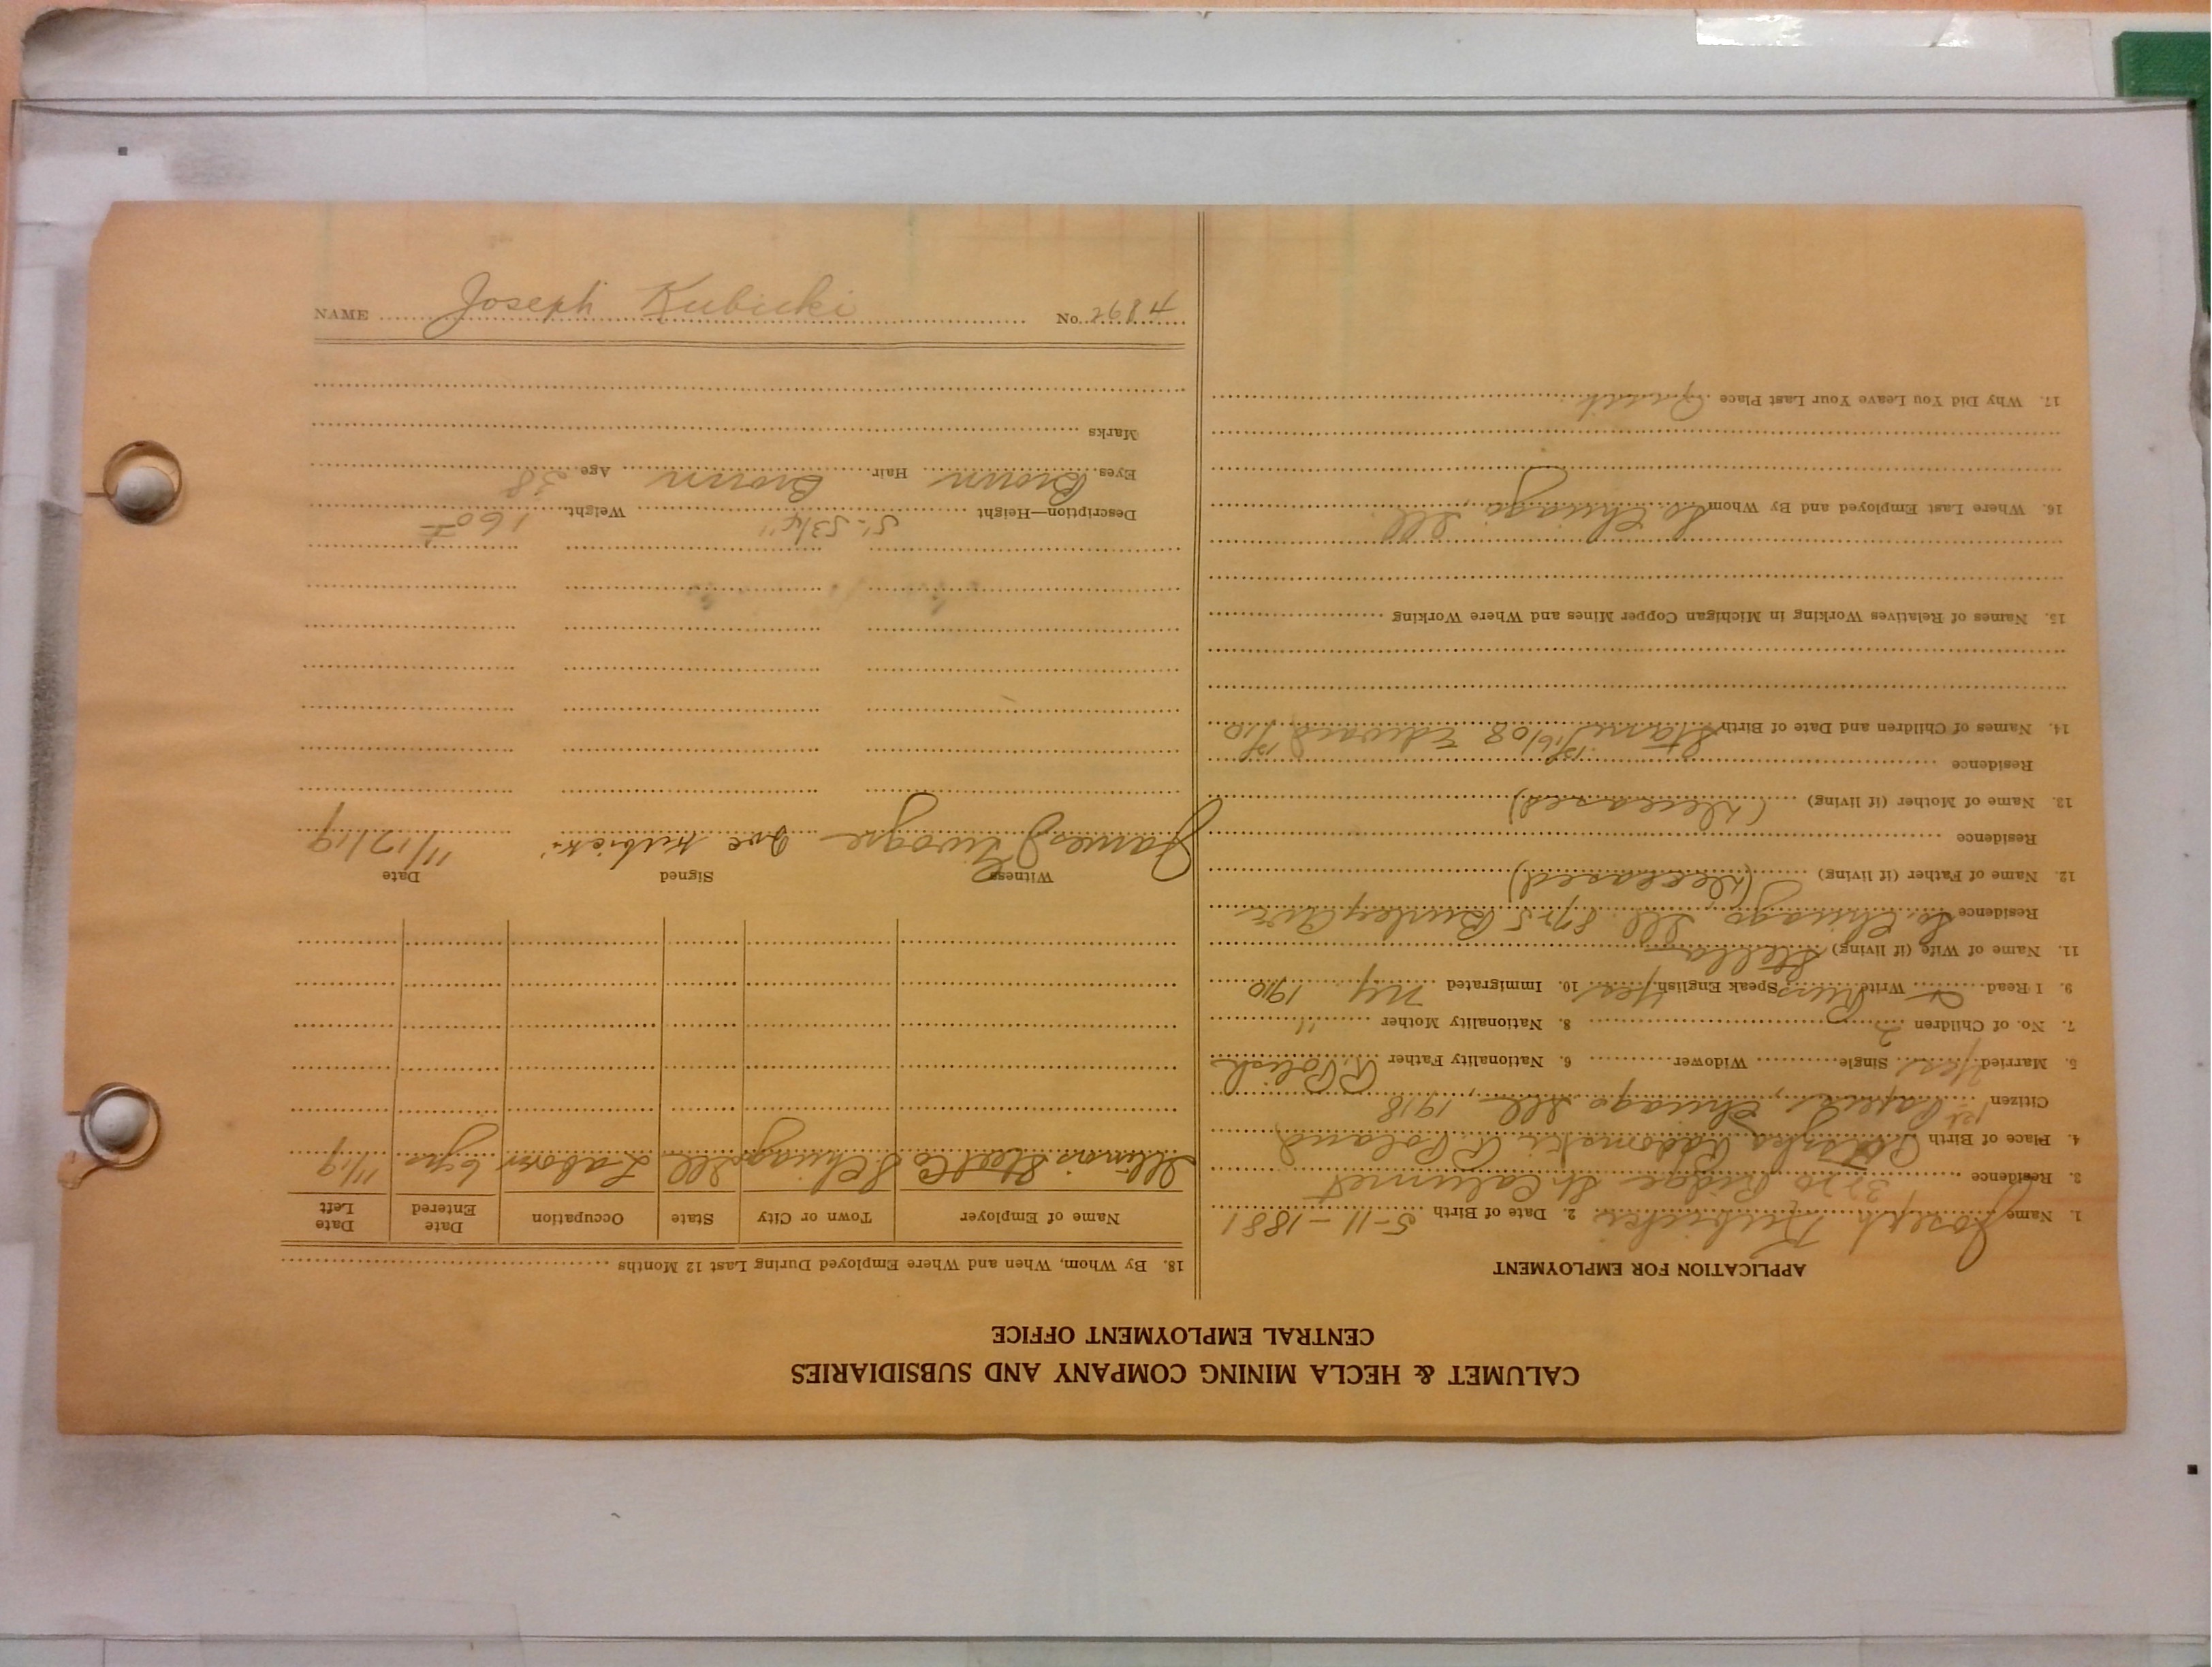 CALUMET & HECLA MINING COMPANY AND SUBSIDIARIES
CENTRAL EMPLOYMENT OFFICE
APPLICATION FOR EMPLOYMENT
1. Name Joseph Kubicki 2. Date of Birth 5-11-1881
3. Residence 3770 Ridge St Calumet
4. Place of Birth R. Poland
Citizen 1st Papers, Chicago Ill 1918
5. Married Yes Single Widower 6. Nationality Father R. Polish
7. No. of Children 2 8. Nationality Mother "
9. I Read Write Speak English Yes 10. Immigrated NY 1910
11. Name of Wife (if living) Stella
Residence So. Chicago Ill. Burley Ave
12. Name of Father (if living) (Deceased)
Residence
13. Name of Mother (if living) (Deceased)
Residence
14. Names of Children and Date of Birth Edward
15. Names of Relatives Working in Michigan Copper Mines and Where Working
16. Where Last Employed and By Whom So. Chicago, Ill.
17. Why Did You Leave Your Last Place
18. By Whom, When and Where Employed During Last 12 Months
Name of Employer Town or City State Occupation Date Entered Date Left
Illinois Steel Co S Chicago Ill Labor 6 yrs 11/19
Witness Signed Date
James Joe Kubicki 11/17/19
Description—Height 5'-5 3/4" Weight 160#
Eyes Brown Hair Brown Age 38
Marks
NAME Joseph Kubicki No. 2684